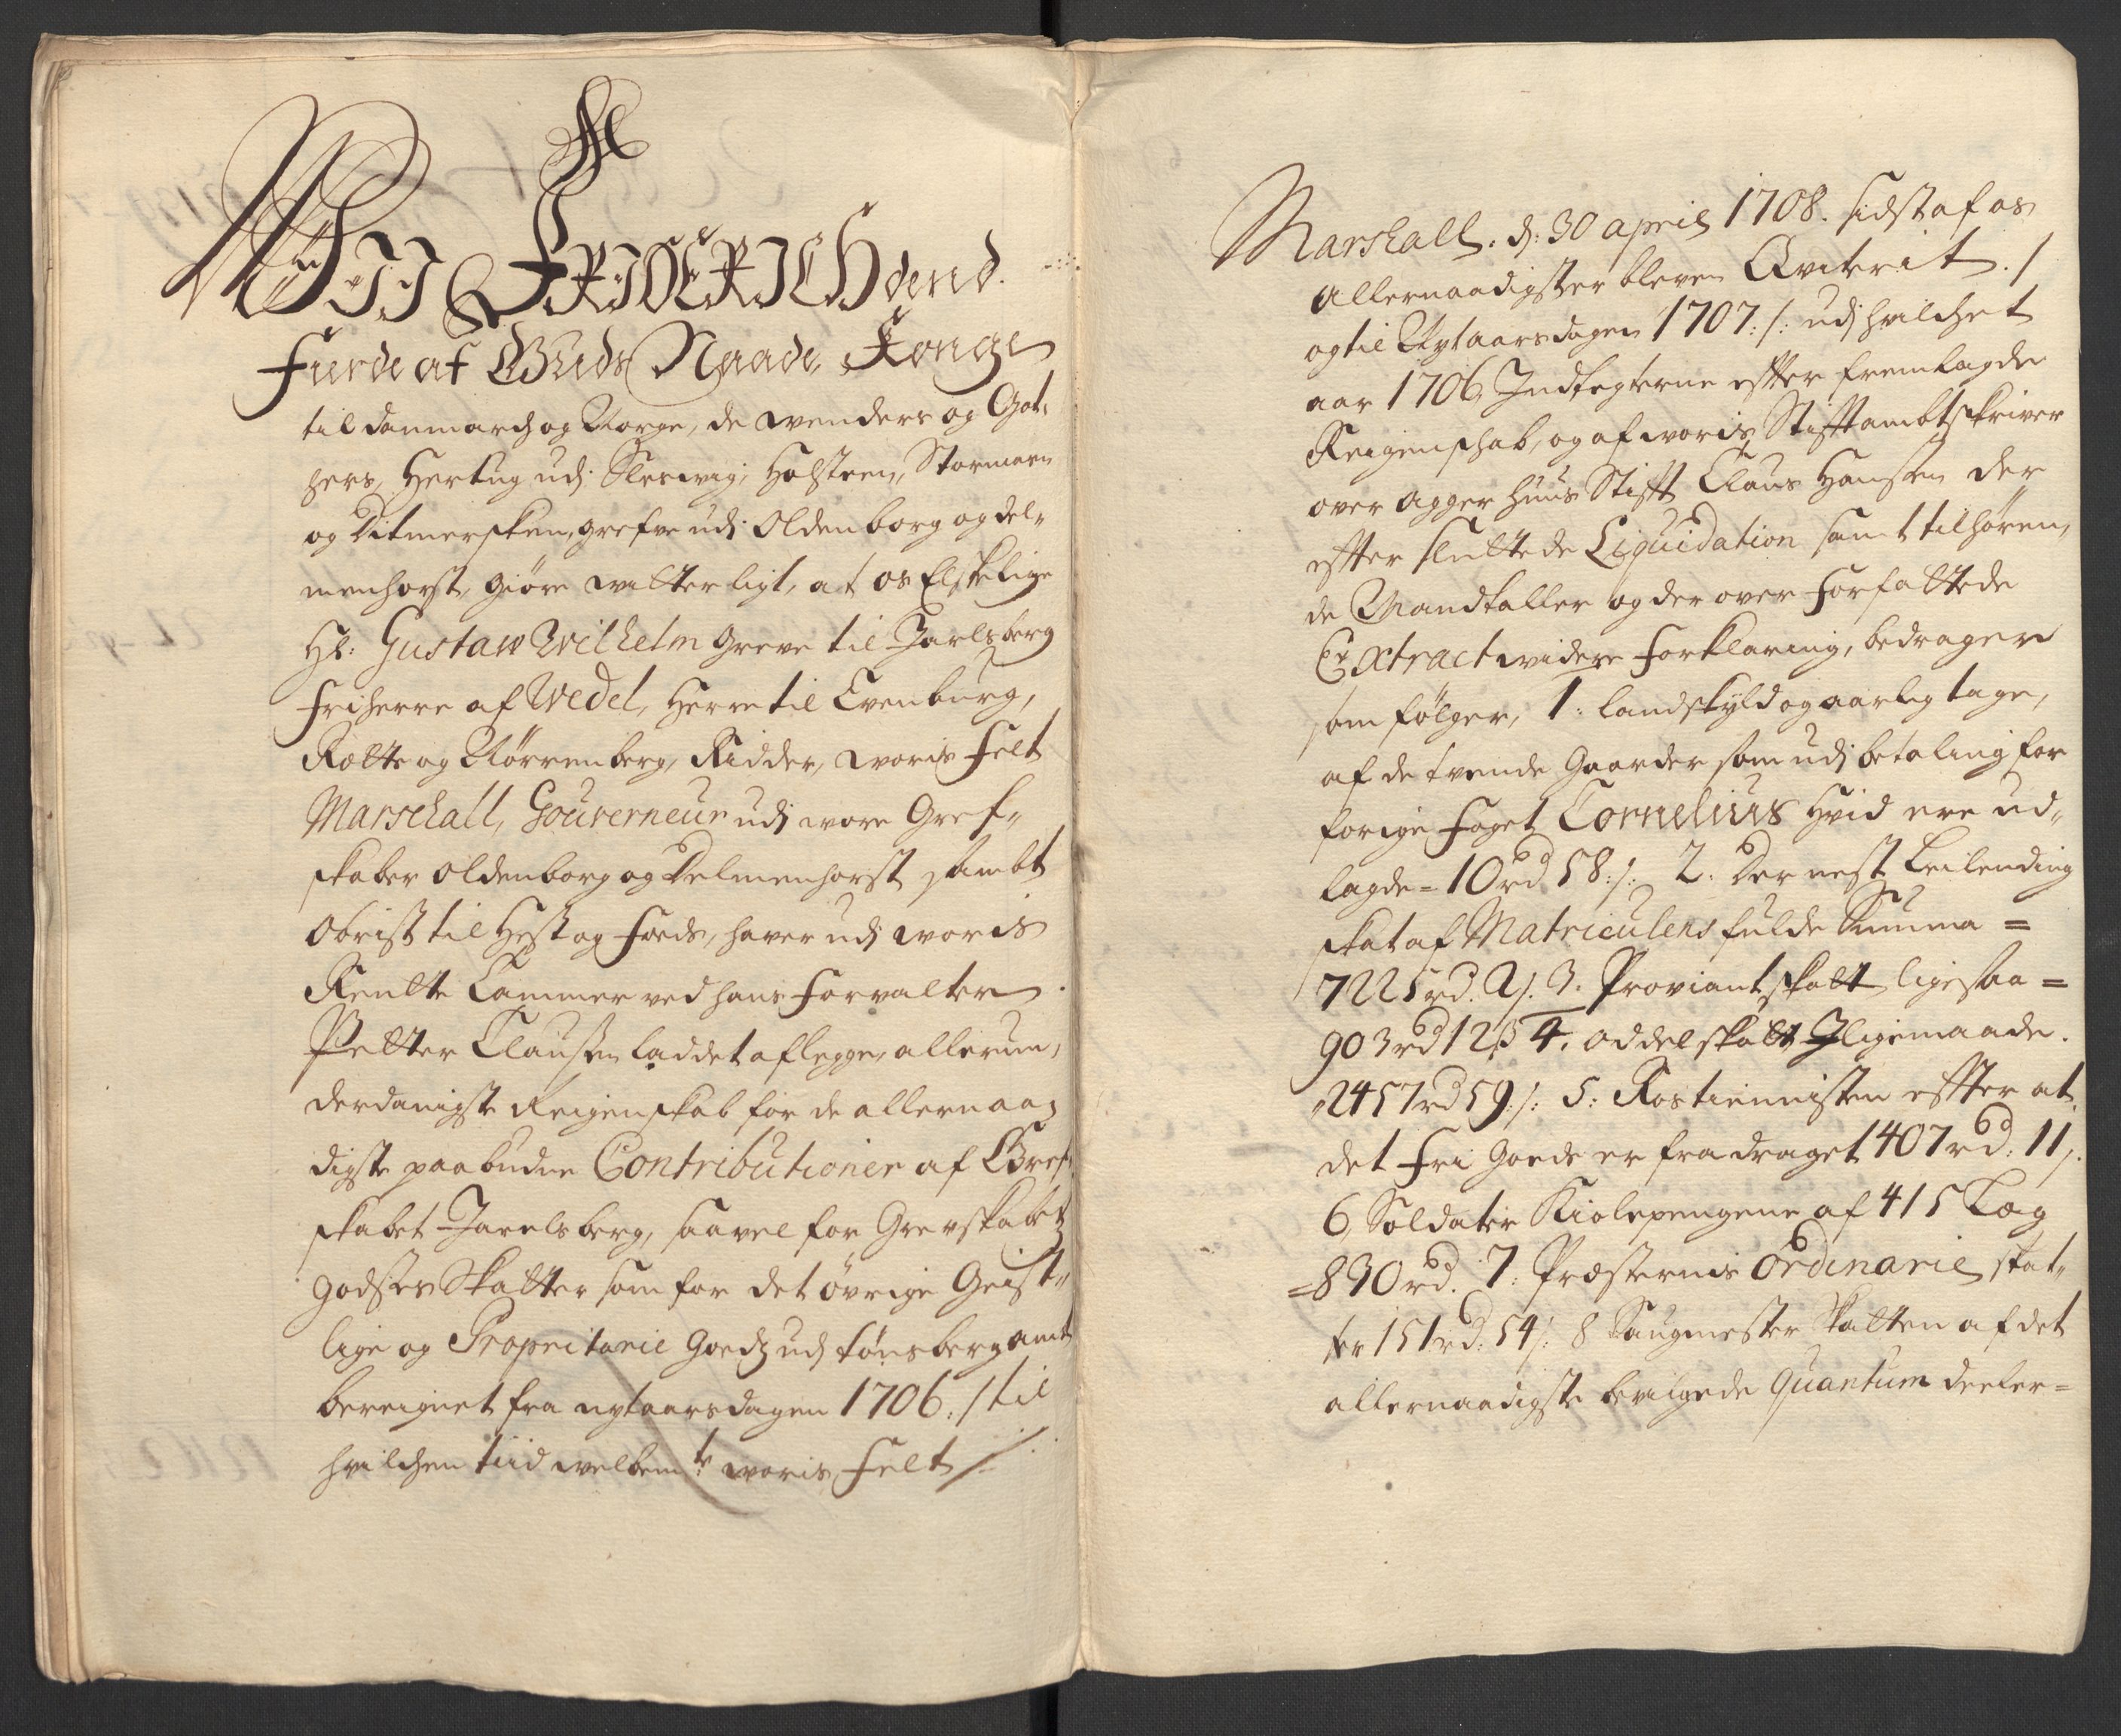 Wii FRIDERICH dend
Fierde af Guds Naade, Konge
til danmarch og Norge, de wenders og Got,
hers, Hertug udj Slesvig, Holsteen, Stormarn
og Ditmersken, grefve udj Oldenborg og del„
menhorst, giöre witterligt, at os Elskelige
Hr: Gustaw Wilhelm Greve til Jarlsberg
friherre af Wedel, Herre til Evenburg,
og Nörrenberg, Ridder, woris Felt
Marschall, Gouverneur udj wore Gref„
skaber Oldenborg og Delmenhorst sambt
Obrist til Hest og Foeds, haver udj woris
Rentte Cammer ved hans forvalter
Petter Claussen laddet aflegge, allerun,
derdanigste Reigenskab for de allernaa,
digste paabudne Contributioner af Gref„
skabet Jarelsberg, saavel for Grevskabetz
godses Skatter som for det övrige Geist„
lige og Proprietarie Goedtz udj tönsberg amt
bereignet fra nytaarsdagen 1706. / til
hvilchen tiid welbemte: woris Felt /.
Marshall. d: 30 april 1708. sidst af os
allernaadigst er bleven Qviterit. /
og til Nytaarsdagen 1707 /: udj hvilchet
aar 1706 Indtegterne effter fremlagde
Reigenschab, og af woris Stifftambtskriver
over Aggerhuus Stifft Claus Hansen der
effter sluttede Liquidation samt tilhören,
de Mandtaller og der over forfattede
Extract widere forklaring, bedrager
som fölger, 1: Landskyld og aarlig tage,
af de tvende Gaarder som udj betaling for
forige foget Cornelius Hvid ere ud„
lagde = 10 rd 58 /: 2. Der nest Leilending
skat af Matriculens fulde Summa =
7225 rd. 2 /. 3. Proviantskatt ligesaa =
903 rd 12 ß 4. Oddelskatt Jligemaade.
„2457 rd 59 /: 5: Rostiennisten effter at
det frj Goeds er fradraget 407 rd: 11 /.
6, Soldater Kiolepengene af 415 Læg
= 830 rd. 7: Præsternis Ordinarie skat„
ter 151 rd: 54 /: 8 Saugmester Skatten af det
allernaadigste bevilgede Quantum